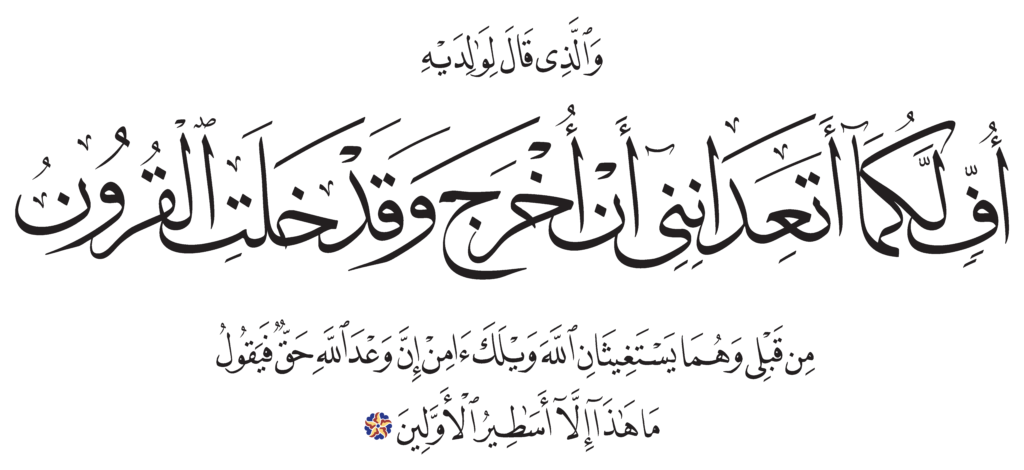 وَٱلَّذِى قَالَ لِوَٰلِدَيْهِ
أُفٍّ لَّكُمَآ أَتَعِدَانِنِىٓ أَنْ أُخْرَجَ وَقَدْ خَلَتِ ٱلْقُرُونُ
مِن قَبْلِى وَهُمَا يَسْتَغِيثَانِ ٱللَّهَ وَيْلَكَ ءَامِنْ إِنَّ وَعْدَ ٱللَّهِ حَقٌّ فَيَقُولُ
مَا هَٰذَآ إِلَّآ أَسَٰطِيرُ ٱلْأَوَّلِينَ